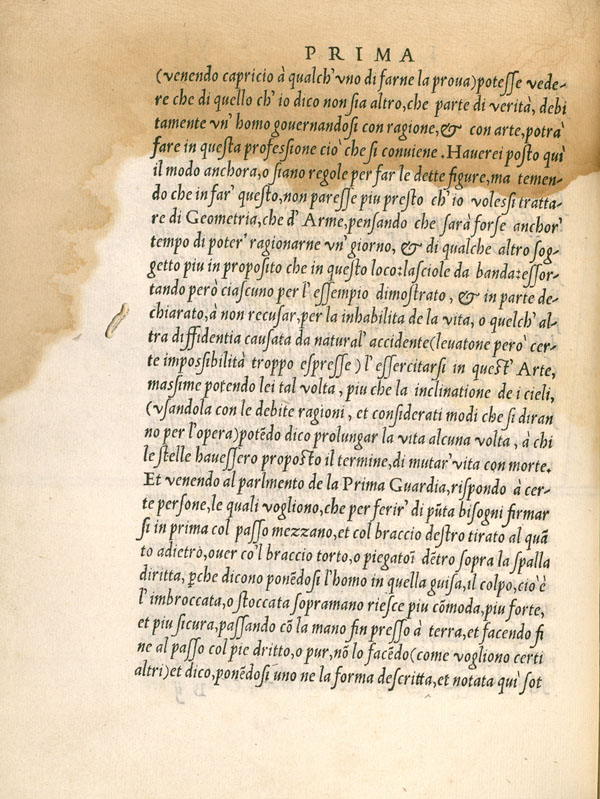 PRIMA
(venendo capricio à qualch' vno di farne la proua)potesse vede-
re che di quello ch' io dico non sia altro,che parte di verità, debi
tamente vn' homo gouernandosi con ragione,& con arte,potrà
fare in questa professione ciò che si conuiene .Hauerei posto quì
il modo anchora,o siano regole per far le dette figure,ma temen-
do che in far' questo,non paresse piu presto ch' io volessi tratta-
re di Geometria,che d' Arme,pensando che sarà forse anchor'
tempo di poter' ragionarne vn' giorno, & di qualche altro sog-
getto piu in proposito che in questo loco:lasciole da banda:essor-
tando però ciascuno per l' essempio dimostrato , & in parte de-
chiarato,à non recusar,per la inhabilita de la vita, o quelch' al-
tra diffidentia causata da natural' accidente(leuatone però cer-
te impossibilità troppo espresse) l' essercitarsi in quest' Arte,
massime potendo lei tal volta , piu che la inclinatione de i cieli,
(vsandola con le debite ragioni , et considerati modi che si diran
no per l'opera)potēdo dico prolungar la vita alcuna volta , à chi
le stelle hauessero proposto il termine,di mutar' vita con morte.
Et venendo al parlmento de la Prima Guardia,rispondo à cer-
te persone,le quali vogliono,che per ferir' di pūta bisogni firmar
si in prima col passo mezzano,et col braccio destro tirato al quā
to adietrò,ouer co'l braccio torto,o piegatoī dētro sopra la spalla
diritta, ꝑche dicono ponēdosi l'homo in quella guisa,il colpo,cio'è
l' imbroccata,o stoccata sopramano riesce piu cōmoda,piu forte,
et piu sicura,passando cō la mano fin presso à terra,et facendo fi
ne al passo col pie dritto,o pur,nō lo facēdo(come vogliono certi
altri)et dico,ponēdosi uno ne la forma descritta,et notata quì sot